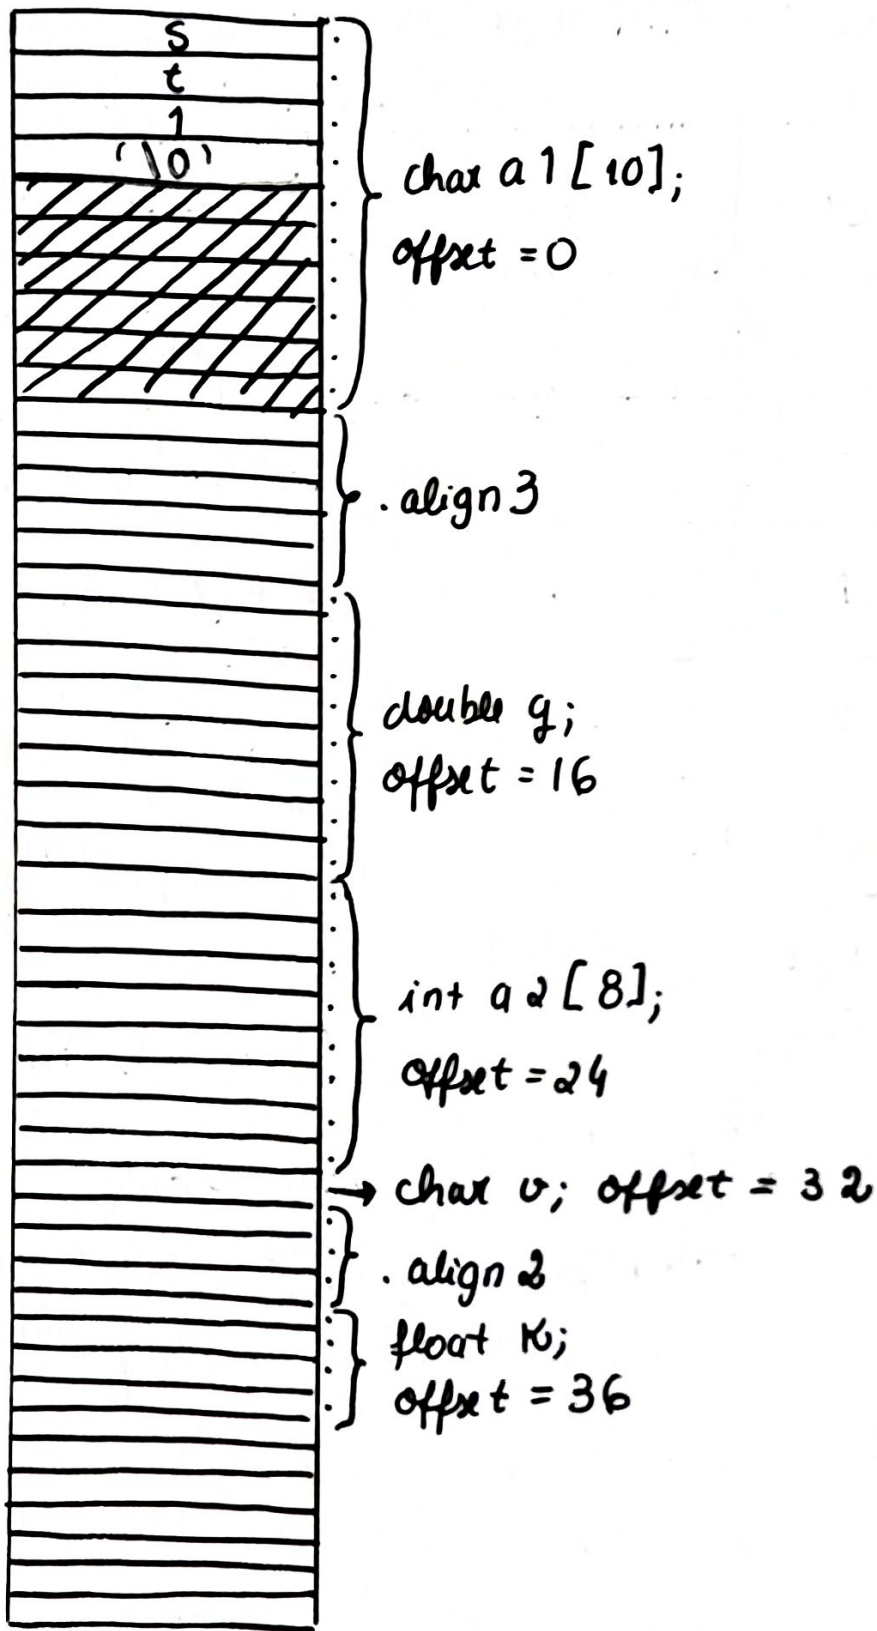 s
t
1
'\0'
char a1[10];
offset = 0
.align 3
double g;
offset = 16
int a2[8];
offset = 24
char v; offset = 32
.align 2
float k;
offset = 36